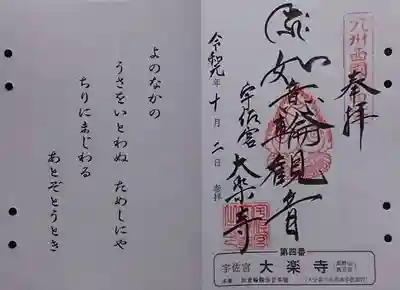 奉拝
如意輪観音
宇佐宮
大楽寺
令和元年十月二日
参拝
第四番
宇佐宮 大楽寺
よのなかの
うさをいとわぬ ためしにや
ちりにまじわる
あとぞとうとき